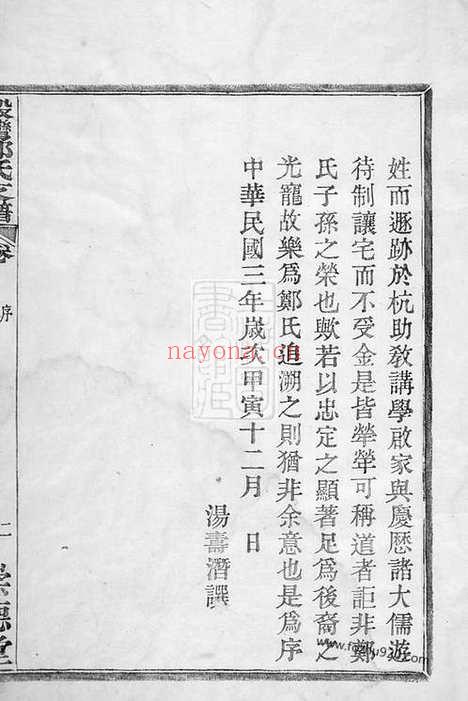 姓而遯跡於杭助教講學啟家與慶歷諸大儒游
待制讓宅而不受金是皆犖犖可稱道者詎非鄭
氏子孫之榮也歟若以忠定之顯著足為後裔之
光寵故樂為鄭氏追溯之則猶非余意也是為序
中華民國三年歲次甲寅十二月 日
湯壽潛譔
鄭氏支譜
序
二
崇德堂
nayona.cn